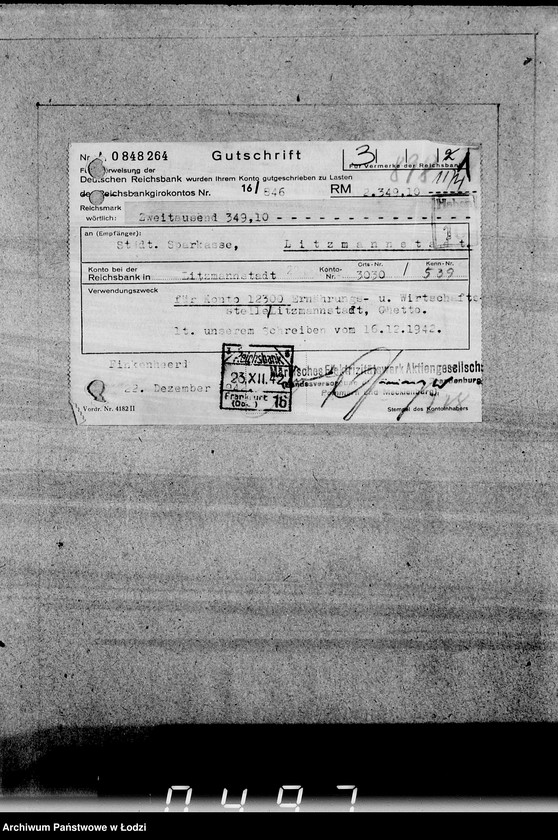 Nr 0848264 Gutschrift 3 2
Für Vermerke der Reichsbank
Überweisung der
Deutschen Reichsbank wurden Ihrem Konto gutgeschrieben zu Lasten
des Reichsbankgirokontos Nr. 16/846 RM 2.349,10
Reichsmark
wörtlich: Zweitausend 349,10 - - - - - - - - - - - - - - -
an (Empfänger):
Städt. Sparkasse, Litzmannstadt.
Konto bei der Reichsbank in Litzmannstadt Konto-Nr. Girs-Nr. 3030 / Kenn-Nr. 539
Verwendungszweck
für Konto 12300 Ernährungs- u. Wirtschafts-
stelle Litzmannstadt, Ghetto.
lt. unserem Schreiben vom 16.12.1942.
Finkenheerd
22. Dezember
Reichsbank
23.XII.42
Frankfurt
(Oder) 1b
Märkisches Elektrizitätswerk Aktiengesellsch
Landesversor Brandenburg,
Pommern und Mecklenburg
Vordr. Nr. 4182 II
Stempel des Kontoinhabers
0497
Archiwum Państwowe w Łodzi